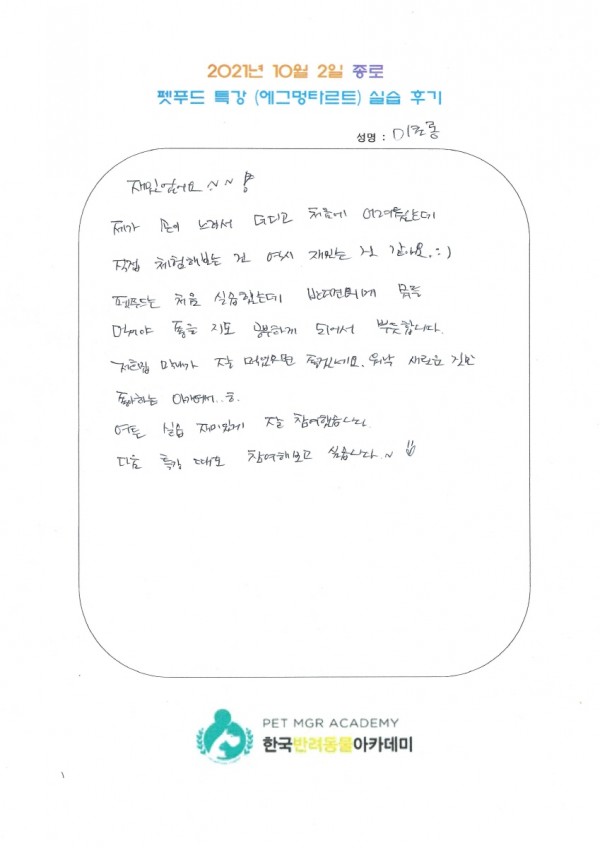 2021년 10월 2일 종로
펫푸드 특강 (에그멍타르트) 실습 후기
성명 :
재밌었어요 ~~!
제가 손이 느려서 더디고 처음에 어려웠는데
직접 체험해보는 건 역시 재밌는 것 같아요. :)
펫푸드는 처음 실습했는데 반려견에게
먹여야 좋을 지도 공부하게 되어서 뿌듯합니다.
저희집 막내가 잘 먹었으면 좋겠네요. 워낙 새로운 걸
좋아하는
여튼 실습 재미있게 잘 참여했습니다.
다음 특강 때도 참여해보고 싶습니다.~
PET MGR ACADEMY
한국반려동물아카데미